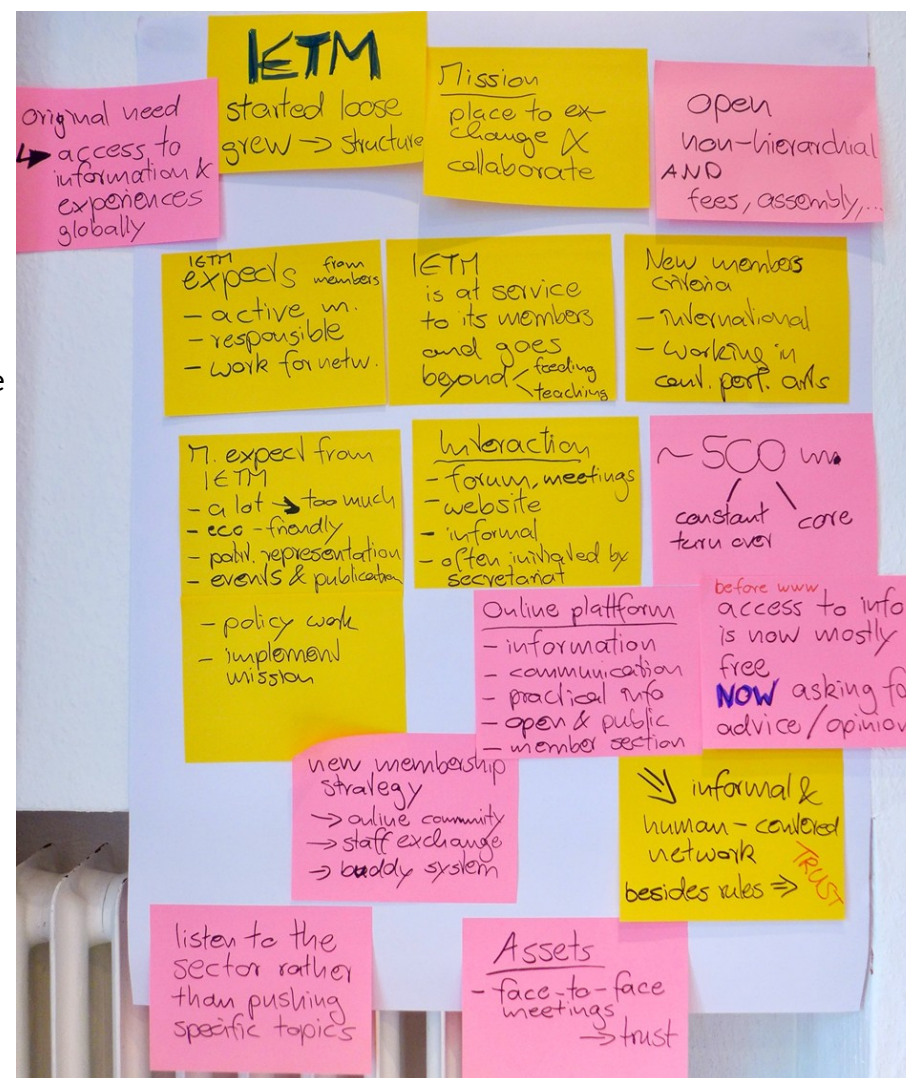 IETM
started loose
grew → structure
original need
↳ access to
information &
experiences
globally
Mission
place to ex-
change &
collaborate
open
non-hierarchial
AND
fees, assembly,...
IETM
expects from
members
- active m.
- responsible
- work for netw.
IETM
is at service
to its members
and goes
beyond < feeding
teaching
New members
criteria
- international
- working in
cont. perf. arts
M. expect from
IETM
- a lot → too much
- eco-friendly
- polit. representation
- events & publication
- policy work
- implement
mission
Interaction
- forum, meetings
- website
- informal
- often initiated by
secretariat
~ 500 m.
constant core
turn over
Online plattform
- information
- communication
- practical info
- open & public
- member section
before www
access to info
is now mostly
free
NOW asking fo
advice/opinion
new membership
strategy
→ online community
→ staff exchange
→ buddy system
informal &
human-centered
network
besides rules ⇒ TRUST
listen to the
sector rather
than pushing
specific topics
Assets
- face-to-face
meetings
→ trust
e